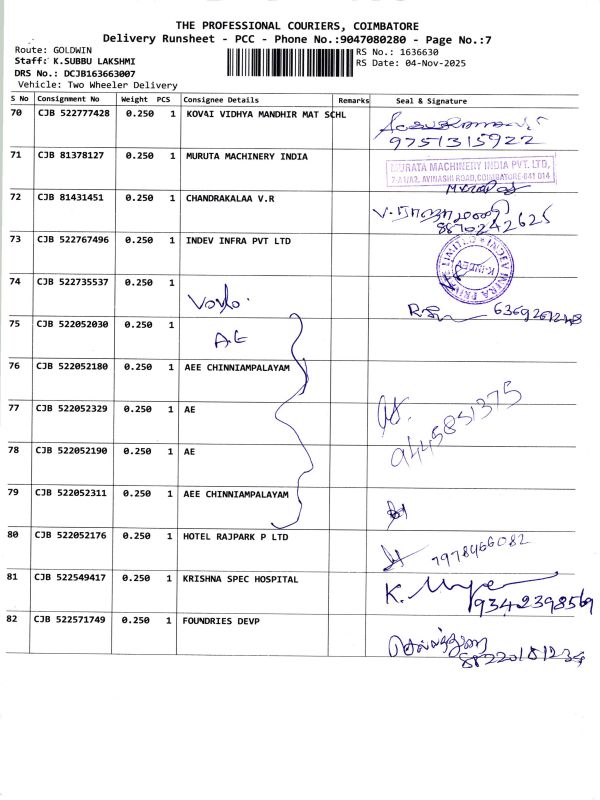 THE PROFESSIONAL COURIERS, COIMBATORE
Delivery Runsheet - PCC - Phone No.:9047080280 - Page No.:7
Route: GOLDWIN
RS No.: 1636630
Staff: K.SUBBU LAKSHMI
RS Date: 04-Nov-2025
DRS No.: DCJB163663007
Vehicle: Two Wheeler Delivery
S No Consignment No Weight PCS Consignee Details Remarks Seal & Signature
70 CJB 522777428 0.250 1 KOVAI VIDHYA MANDHIR MAT SCHL
9751315922
71 CJB 81378127 0.250 1 MURUTA MACHINERY INDIA
MURATA MACHINERY INDIA PVT. LTD,
7-A1/A2, AVINASHI ROAD, COIMBATORE-641 014
72 CJB 81431451 0.250 1 CHANDRAKALAA V.R
8870242625
73 CJB 522767496 0.250 1 INDEV INFRA PVT LTD
INDEV INFRA PRIVATE
74 CJB 522735537 0.250 1
6369261248
75 CJB 522052030 0.250 1 A.E
76 CJB 522052180 0.250 1 AEE CHINNIAMPALAYAM
77 CJB 522052329 0.250 1 AE
9445851375
78 CJB 522052190 0.250 1 AE
79 CJB 522052311 0.250 1 AEE CHINNIAMPALAYAM
80 CJB 522052176 0.250 1 HOTEL RAJPARK P LTD
7978466082
81 CJB 522549417 0.250 1 KRISHNA SPEC HOSPITAL
9342398569
82 CJB 522571749 0.250 1 FOUNDRIES DEVP
88220181234